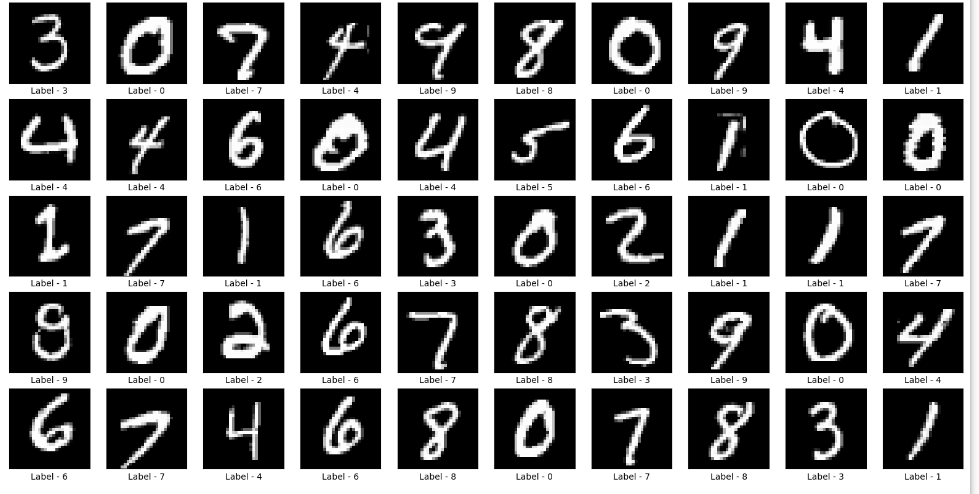 3 0 7 4 9 8 0 9 4 1
Label - 3 Label - 0 Label - 7 Label - 4 Label - 9 Label - 8 Label - 0 Label - 9 Label - 4 Label - 1
4 4 6 0 4 5 6 1 0 0
Label - 4 Label - 4 Label - 6 Label - 0 Label - 4 Label - 5 Label - 6 Label - 1 Label - 0 Label - 0
1 7 1 6 3 0 2 1 1 7
Label - 1 Label - 7 Label - 1 Label - 6 Label - 3 Label - 0 Label - 2 Label - 1 Label - 1 Label - 7
9 0 2 6 7 8 3 9 0 4
Label - 9 Label - 0 Label - 2 Label - 6 Label - 7 Label - 8 Label - 3 Label - 9 Label - 0 Label - 4
6 7 4 6 8 0 7 8 3 1
Label - 6 Label - 7 Label - 4 Label - 6 Label - 8 Label - 0 Label - 7 Label - 8 Label - 3 Label - 1